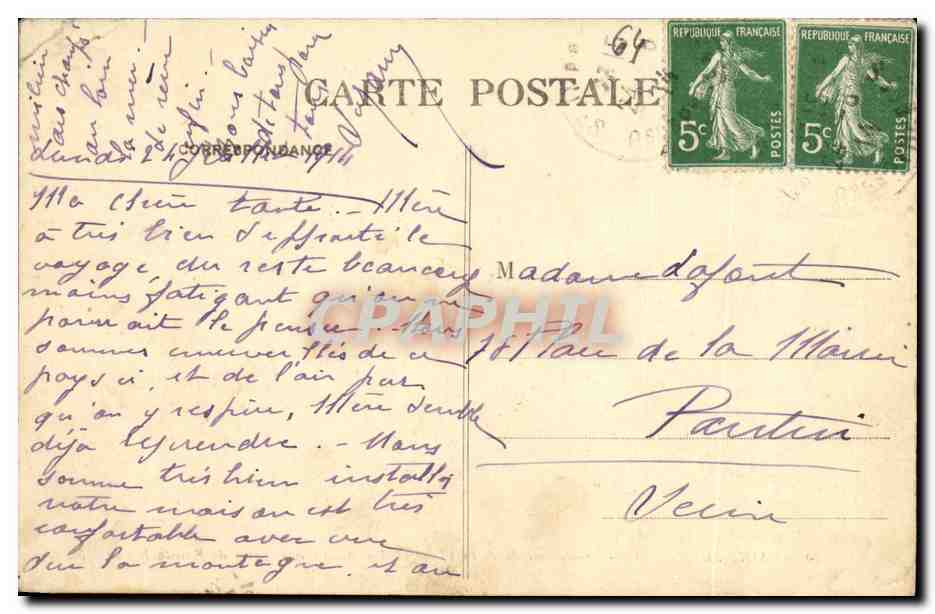 64
REPUBLIQUE FRANÇAISE
5c POSTES
REPUBLIQUE FRANÇAISE
5c POSTES
CARTE POSTALE
CORRESPONDANCE
Lundi 24 1914
Ma chère tante. - Mère
a très bien supporté le
voyage, du reste beaucoup
moins fatigant qu'on ne
pourrait le penser. Nous
sommes émerveillés de ce
pays ci, et de l'air pur
qu'on y respire, Mère semble
déjà reprendre. - Nous
sommes très bien installés
notre maison est très
confortable avec vue
sur la montagne, et au
milieu
des champs
au bon
Madame Lafont
Place de la Mairie
Pantin
Seine
CPAPHIL